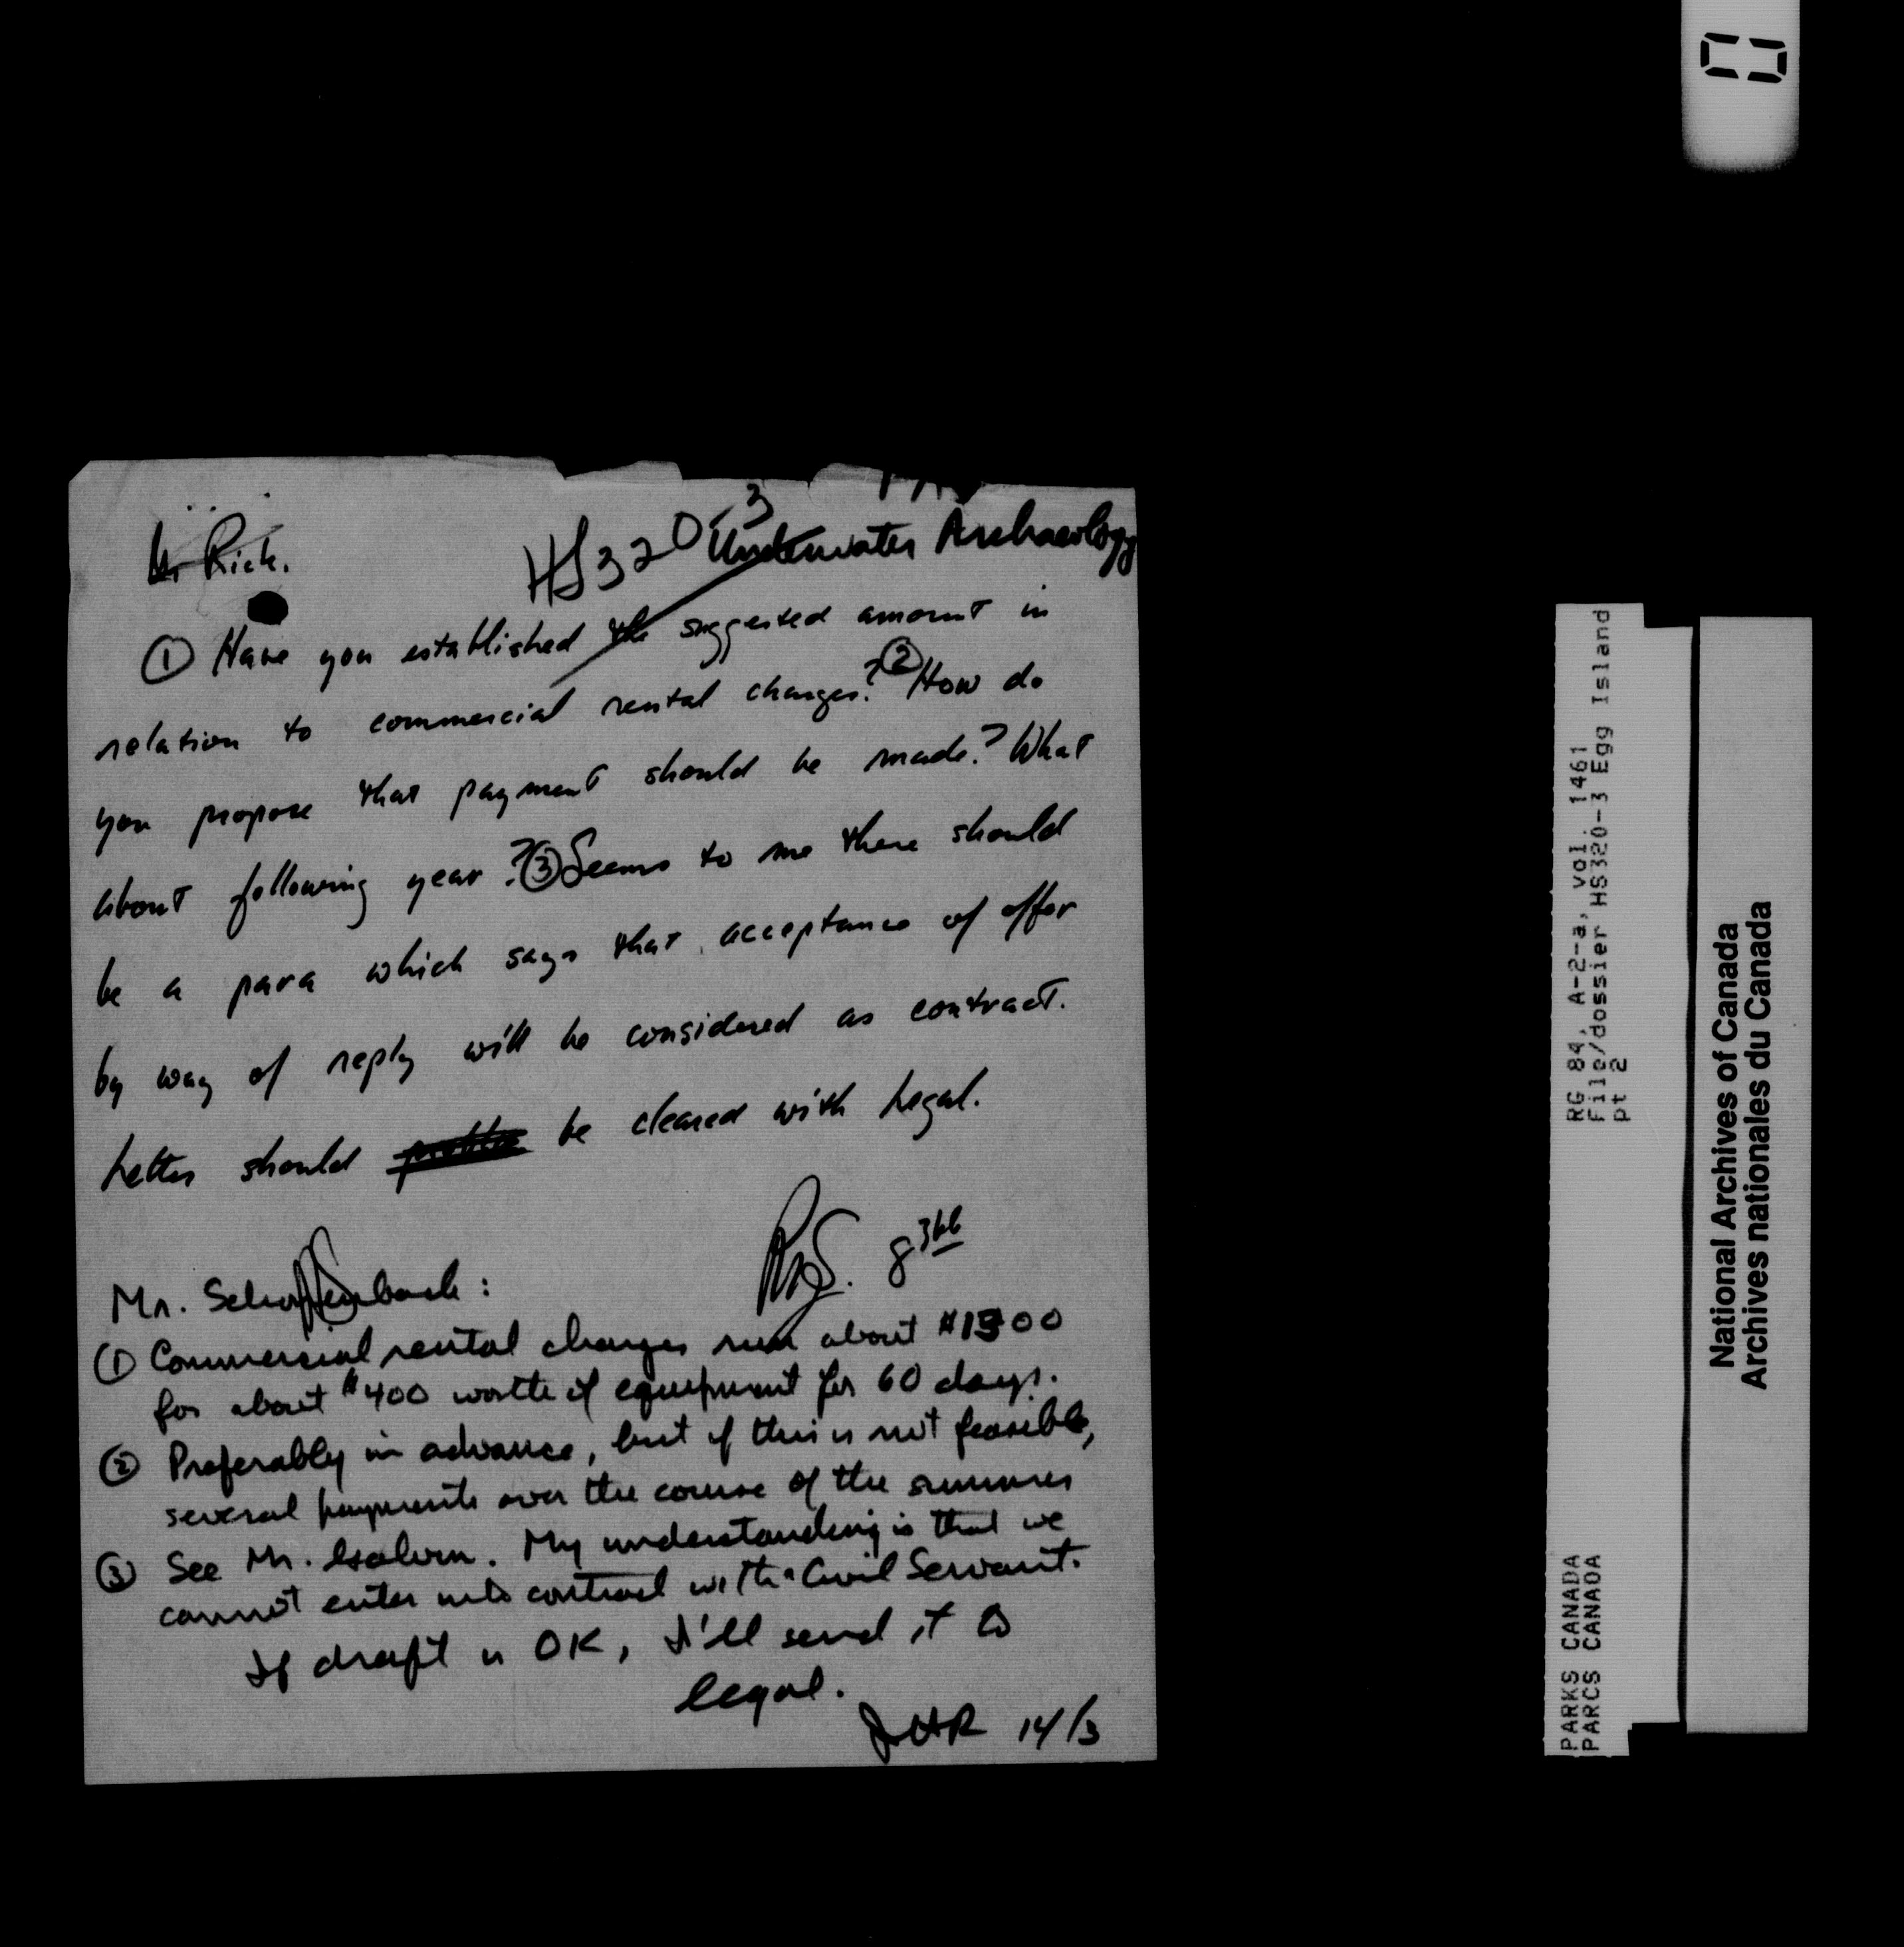 Mr Rick.
HS320-3
Underwater Archaeology
① Have you established the suggested amount in
relation to commercial rental charges? ② How do
you propose that payment should be made? What
about following year? ③ Seems to me there should
be a para which says that acceptance of offer
by way of reply will be considered as contract.
Letter should be cleared with Legal.
8 3 66
Mr. :
① Commercial rental charges run about $1300
for about $400 worth of equipment for 60 days.
② Preferably in advance, but if this is not feasible,
several payments over the course of the summer
③ See Mr. My understanding is that we
cannot enter into contract with a Civil Servant.
If draft is OK, I'll send it to
legal.
JHR 14/3
RG 84, A-2-a, vol. 1461
File/dossier HS320-3 Egg Island
pt 2
PARKS CANADA
PARCS CANADA
National Archives of Canada
Archives nationales du Canada